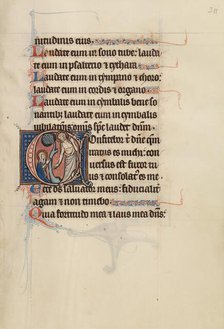 itudinis eius.
Laudate eum in sono tube: lauda
te eum in psalterio et cythara
Laudate eum in tympano et choro:
laudate eum in cordis et organo
Laudate eum in cymbalis bene so
nantibus laudate eum in cymbalis
iubilationis omnis spc laudet dnm.
Confitebor t dne qm
iratus es michi: con
uersus est furor tuus
et consolatus es me
Ecce ds saluator meus: fiducialit
agam et non timebo
Quia fortitudo mea et laus mea dns: